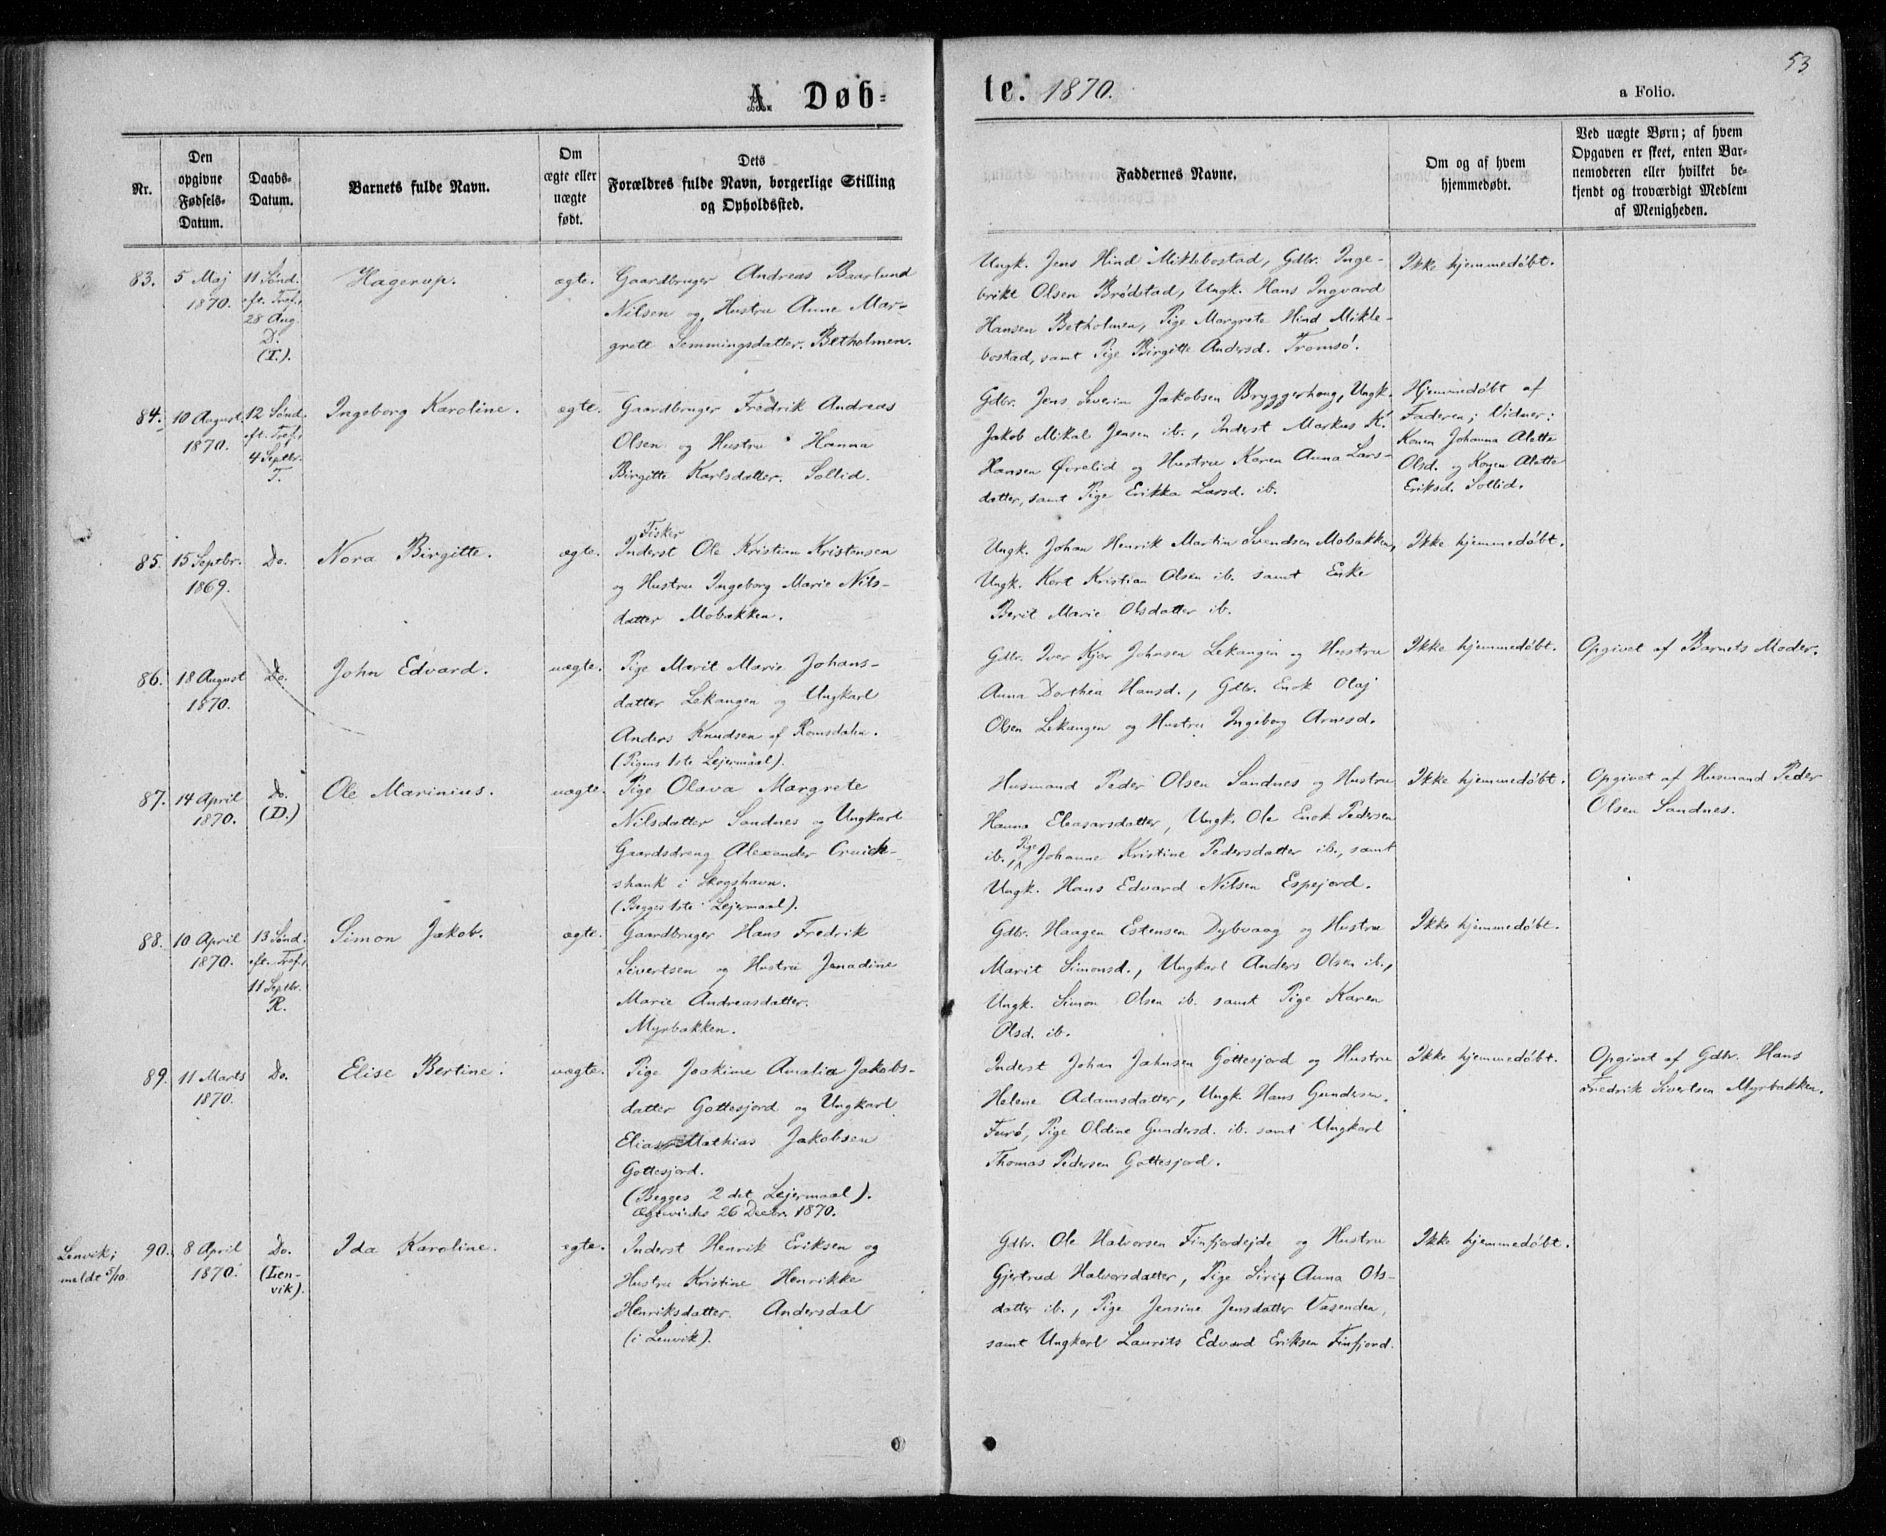 53
A. Døb=
te. 1870.
a Folio.
Nr.
Den
opgivne
Fødsels-
Datum.
Daabs-
Datum.
Barnets fulde Navn.
Om
ægte eller
uægte
født.
Dets
Forældres fulde Navn, borgerlige Stilling
og Opholdssted.
Faddernes Navne.
Om og af hvem
hjemmedøbt.
Ved uægte Børn; af hvem
Opgaven er skeet, enten Bar-
nemoderen eller hvilket be-
kjendt og troværdigt Medlem
af Menigheden.
83.
5 Maj
1870.
11 Sønd.
eft. Tref.,
28 Aug.
D.
(T.).
Hagerup.
ægte.
Gaardbruger Andreas Baarlund
Nilsen og Hustru Anne Mar-
grete Lemmingsdatter. Betholmen.
Ungk. Jens Hind Miklebostad, Gdbr. Inge-
brikt Olsen Brødstad, Ungk. Hans Ingvard
Hansen Betholmen, Pige Margrete Hind Mikle-
bostad, samt Pige Birgitte Andersd. Tromsø.
Ikke hjemmedøbt.
84.
10 August
1870.
12 Sønd.
eft. Tref.,
4 Septbr.
T.
Ingeborg Karoline.
ægte.
Gaardbruger Fredrik Andreas
Olsen og Hustru Hanna
Birgitte Karlsdatter. Sollid.
Gdbr. Jens Severin Jakobsen Bryggerhaug, Ungk.
Jakob Mikal Jensen ib., Inderst Markus K.
Hansen Øvrelid og Hustru Karen Anna Lars-
datter, samt Pige Erikka Larsd. ib.
Hjemmedøbt af
Faderen; Vidner:
Konen Johanna Alette
Olsd. og Konen Alette
Eriksd. Sollid.
85.
15 Septbr.
1869.
Do.
Nora Birgitte.
ægte.
Fisker
Inderst Ole Kristian Kristensen
og Hustru Ingeborg Marie Nils-
datter Mobakken.
Ungk. Johan Henrik Martin Svendsen Mobakken,
Ungk. Kort Kristian Olsen ib. samt Enke
Berit Marie Olsdatter ib.
Ikke hjemmedøbt.
86.
18 August
1870.
Do.
John Edvard.
uægte.
Pige Marit Marie Johans-
datter Lekangen og Ungkarl
Anders Knudsen af Romsdalen.
(Pigens 1ste Lejermaal).
Gdbr. Iver Kjær Johnsen Lekangen og Hustru
Anna Dorthea Hansd., Gdbr. Enok Olaj
Olsen Lekangen og Hustru Ingeborg Arnesd.
Ikke hjemmedøbt.
Opgivet af Barnets Moder.
87.
14 April
1870.
Do.
(D.)
Ole Marinius.
uægte.
Pige Olava Margrete
Nilsdatter Sandnes og Ungkarl
Gaardsdreng Alexander Cruick-
shank i Skogshavn.
(Begges 1ste Lejermaal).
Husmand Peder Olsen Sandnes og Hustru
Hanna Eleasarsdatter, Ungk. Ole Enok Pedersen
ib., Pige Johanne Kristine Pedersdatter ib., samt
Ungk. Hans Edvard Nilsen Espejord.
Ikke hjemmedøbt.
Opgivet af Husmand Peder
Olsen Sandnes.
88.
10 April
1870.
13 Sønd.
eft. Tref.,
11 Septbr.
R.
Simon Jakob.
ægte.
Gaardbruger Hans Fredrik
Sivertsen og Hustru Jenadine
Marie Andreasdatter.
Myrbakken.
Gdbr. Haagen Estensen Dybvaag og Hustru
Marit Simonsd., Ungkarl Anders Olsen ib.,
Ungk. Simon Olsen ib. samt Pige Karen
Olsd. ib.
Ikke hjemmedøbt.
89.
11 Marts
1870.
Do.
Elise Bertine.
uægte.
Pige Joakime Amalia Jakobs-
datter Gottesjord og Ungkarl
Elias Mathias Jakobsen
Gottesjord.
(Begges 2det Lejermaal).
Ægteviede 26 Decbr. 1870.
Inderst Johan Jahnsen Gottesjord og Hustru
Helene Adamsdatter, Ungk. Hans Gundersen
Furø, Pige Oldine Gundersd. ib. samt Ungkarl
Thomas Pedersen Gottesjord.
Ikke hjemmedøbt.
Opgivet af Gdbr. Hans
Fredrik Sivertsen Myrbakken.
Lenvik;
meldt 5/10.
90.
8 April
1870.
Do.
(Len-
vik).
Ida Karoline.
ægte.
Inderst Henrik Eriksen og
Hustru Kristine Henrikke
Henriksdatter. Andersdal
(i Lenvik).
Gdbr. Ole Halvorsen Finfjordejde og Hustru
Gjertrud Halvorsdatter, Pige Siri Anna Ols-
datter ib., Pige Jensine Jensdatter Vasenden,
samt Ungkarl Laurits Edvard Eriksen Finfjord.
Ikke hjemmedøbt.